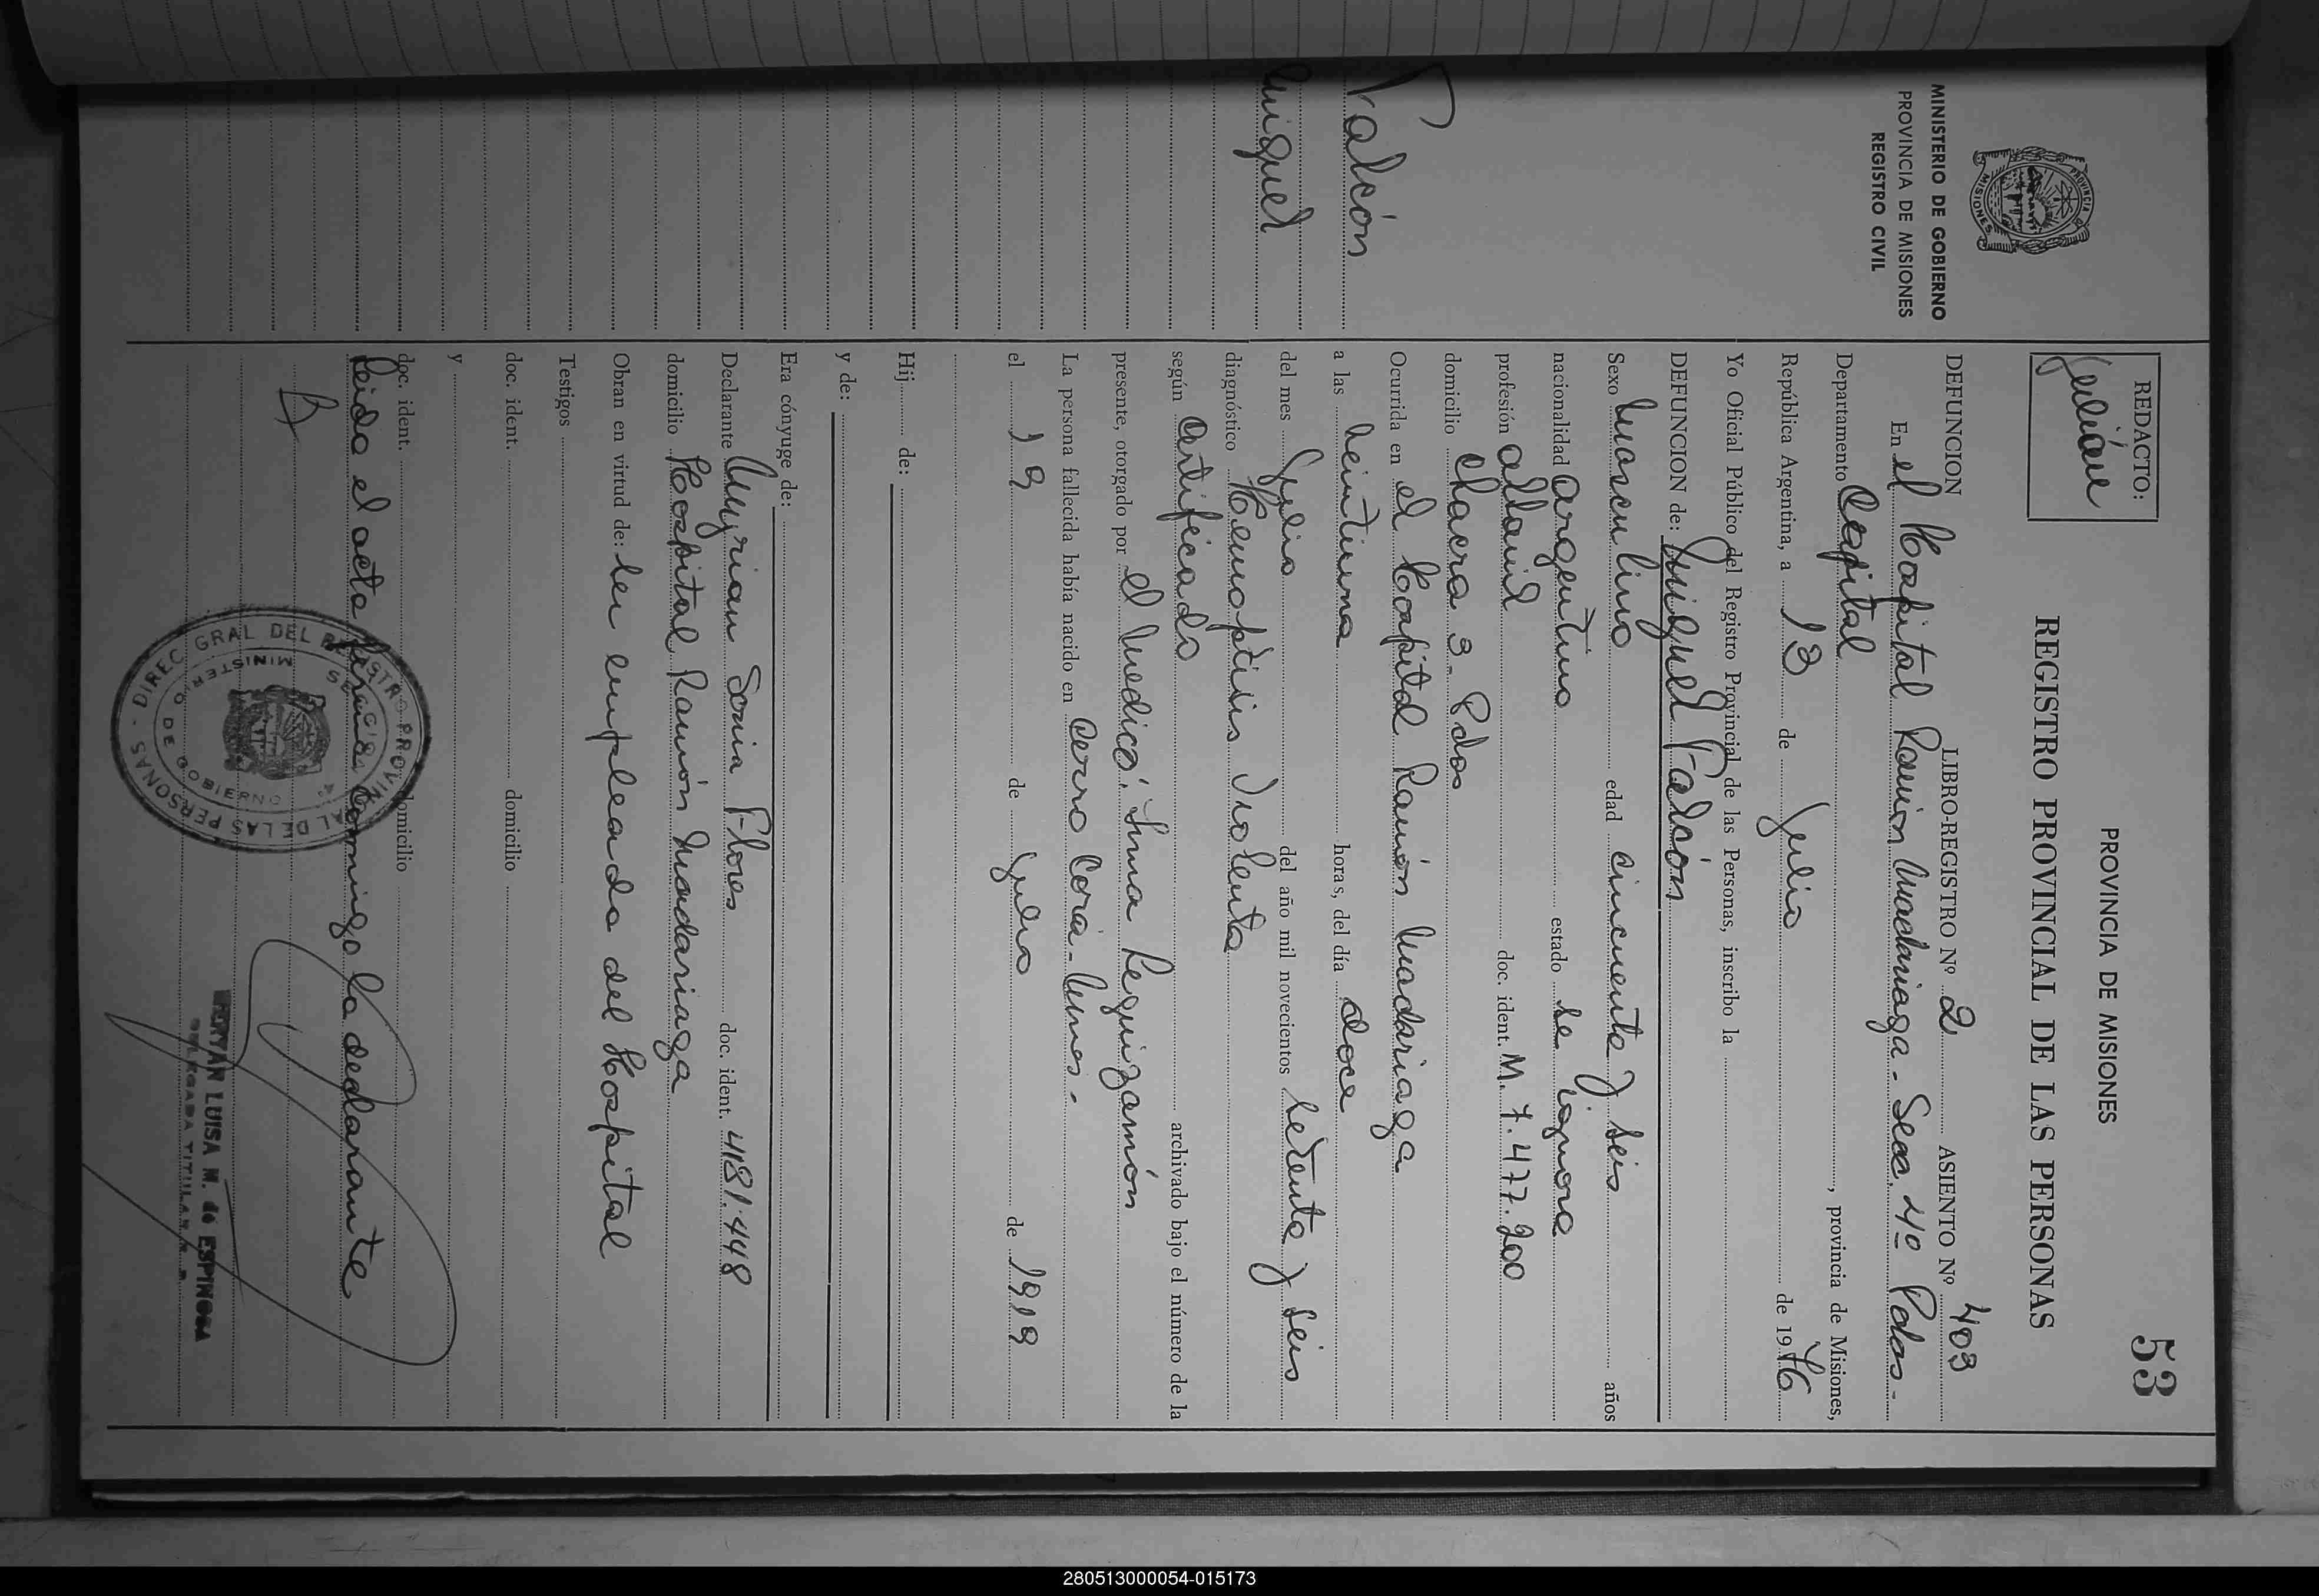 53
PROVINCIA DE MISIONES
REGISTRO PROVINCIAL DE LAS PERSONAS
MINISTERIO DE GOBIERNO
PROVINCIA DE MISIONES
REGISTRO CIVIL
REDACTO:
Julián
Falcón
Miguel
DEFUNCION LIBRO-REGISTRO Nº 2 ASIENTO Nº 403
En el Hospital Ramón Madariaga - Secc. 4º Pdas -
Departamento Capital, provincia de Misiones,
República Argentina, a 13 de Julio de 1976
Yo Oficial Público del Registro Provincial de las Personas, inscribo la
DEFUNCION de: Miguel Falcón
Sexo Masculino edad cincuenta y seis años
nacionalidad argentino estado se ignora
profesión albañil doc. ident. M. 7.477.200
domicilio chacra 3 - Pdas
Ocurrida en el Hospital Ramón Madariaga
a las veintiuna horas, del día doce
del mes Julio del año mil novecientos setenta y seis
diagnóstico Hemoptisis Violenta
según certificado archivado bajo el número de la
presente, otorgado por el médico: Irma Leguizamón
La persona fallecida había nacido en Cerro Corá - Mnes -
el 19 de Julio de 1919
Hij de:
y de:
Era cónyuge de:
Declarante Myrian Soria Flores doc. ident. 4181.448
domicilio Hospital Ramón Madariaga
Obran en virtud de: ser empleada del Hospital
Testigos
doc. ident. domicilio
y
doc. ident. domicilio
Leida el acta firma conmigo la declarante
DIREC GRAL DEL REGISTRO PROVINCIAL DE LAS PERSONAS
MINISTERIO DE GOBIERNO
LUISA M. de ESPINOSA
DELEGADA TITULAR
280513000054-015173